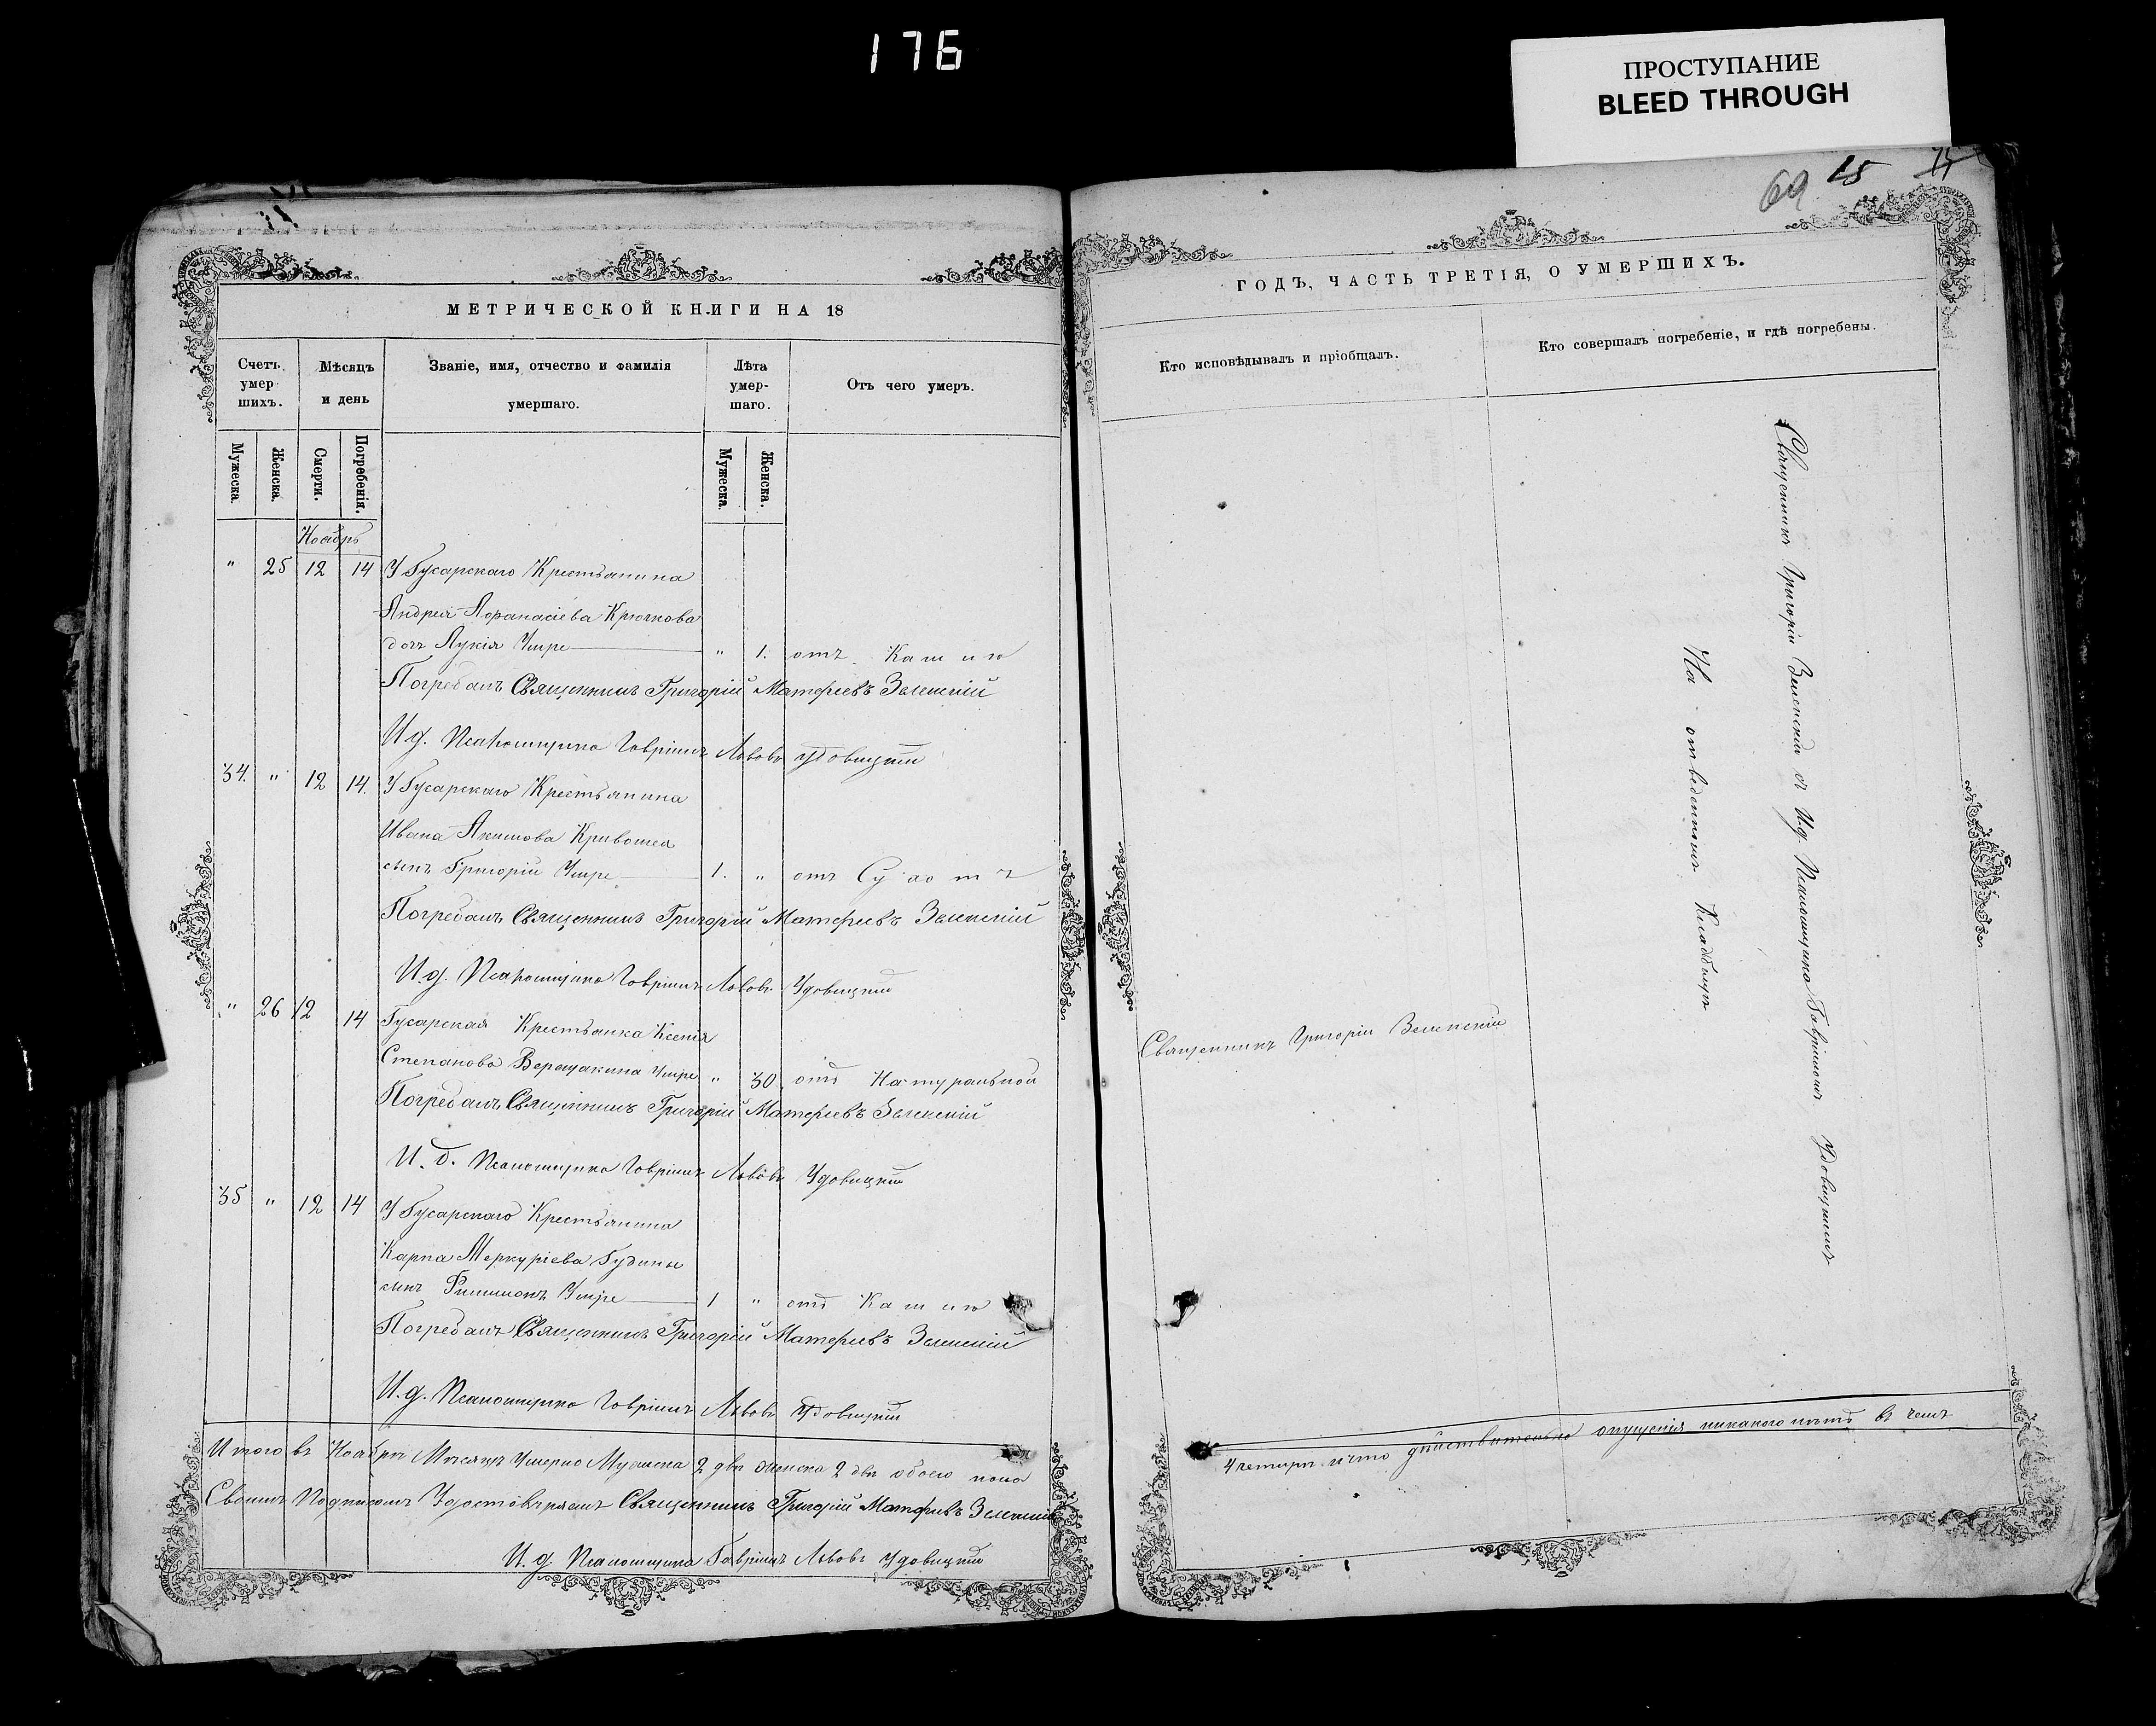 176
ПРОСТУПАНИЕ
BLEED THROUGH
69 15
МЕТРИЧЕСКОЙ КНИГИ НА 18
Счетъ умершихъ.
Мѣсяцъ и день
Званіе, имя, отчество и фамилія умершаго.
Лѣта умершаго.
Отъ чего умеръ.
Мужеска.
Женска.
Смерти.
Погребенія.
Мужеска.
Женска.
Ноябрь
" 25 12 14 У Гусарскаго Крестьянина
Андрея Афанасіева Крючкова
дочь Лукія Умре " 1. отъ Кашлю
Погребалъ Священникъ Григорій Матфеевъ Зеленскій
И.д. Псаломщика Гавріилъ Львовъ Удовицкій
34. " 12 14. У Гусарскаго Крестьянина
Ивана Акимова Кривошея
сынъ Григорій Умре 1. " отъ
Погребалъ Священникъ Григорій Матфеевъ Зеленскій
И.д. Псаломщика Гавріилъ Львовъ Удовицкій
" 26 12 14 Гусарская Крестьянка Ксенія
Степанова Верещакина Умре " 30 отъ Натуральной
Погребалъ Священникъ Григорій Матфеевъ Зеленскій
И.д. Псаломщика Гавріилъ Львовъ Удовицкій
35 " 12 14 У Гусарскаго Крестьянина
Карпа Меркуріева Гудины
сынъ Филимонъ Умре 1 " отъ Кашлю
Погребалъ Священникъ Григорій Матфеевъ Зеленскій
И.д. Псаломщика Гавріилъ Львовъ Удовицкій
Итого въ Ноябрѣ Мѣсяцѣ Умерло Мужеска 2 два женска 2 двѣ обоего пола
Своимъ Подписомъ Удостовѣряемъ Священникъ Григорій Матфеевъ Зеленскій
И.д. Псаломщика Гавріилъ Львовъ Удовицкій
ГОДЪ, ЧАСТЬ ТРЕТІЯ, О УМЕРШИХЪ.
Кто исповѣдывалъ и пріобщалъ.
Кто совершалъ погребеніе, и гдѣ погребены.
Священникъ Григорій Зеленскій
Священникъ Григорій Зеленскій съ И.д. Псаломщика Гавріиломъ Удовицкимъ
На отведенномъ Кладбищѣ
Четыре и что дѣйствительно опущенія никакого нѣтъ въ чемъ